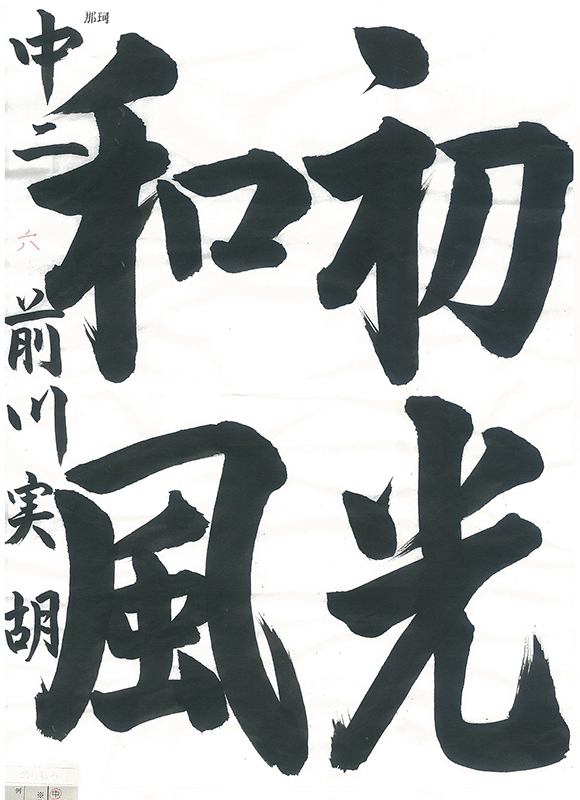 初光
和風
那珂
中二 六 前川実胡
例 ※ 中